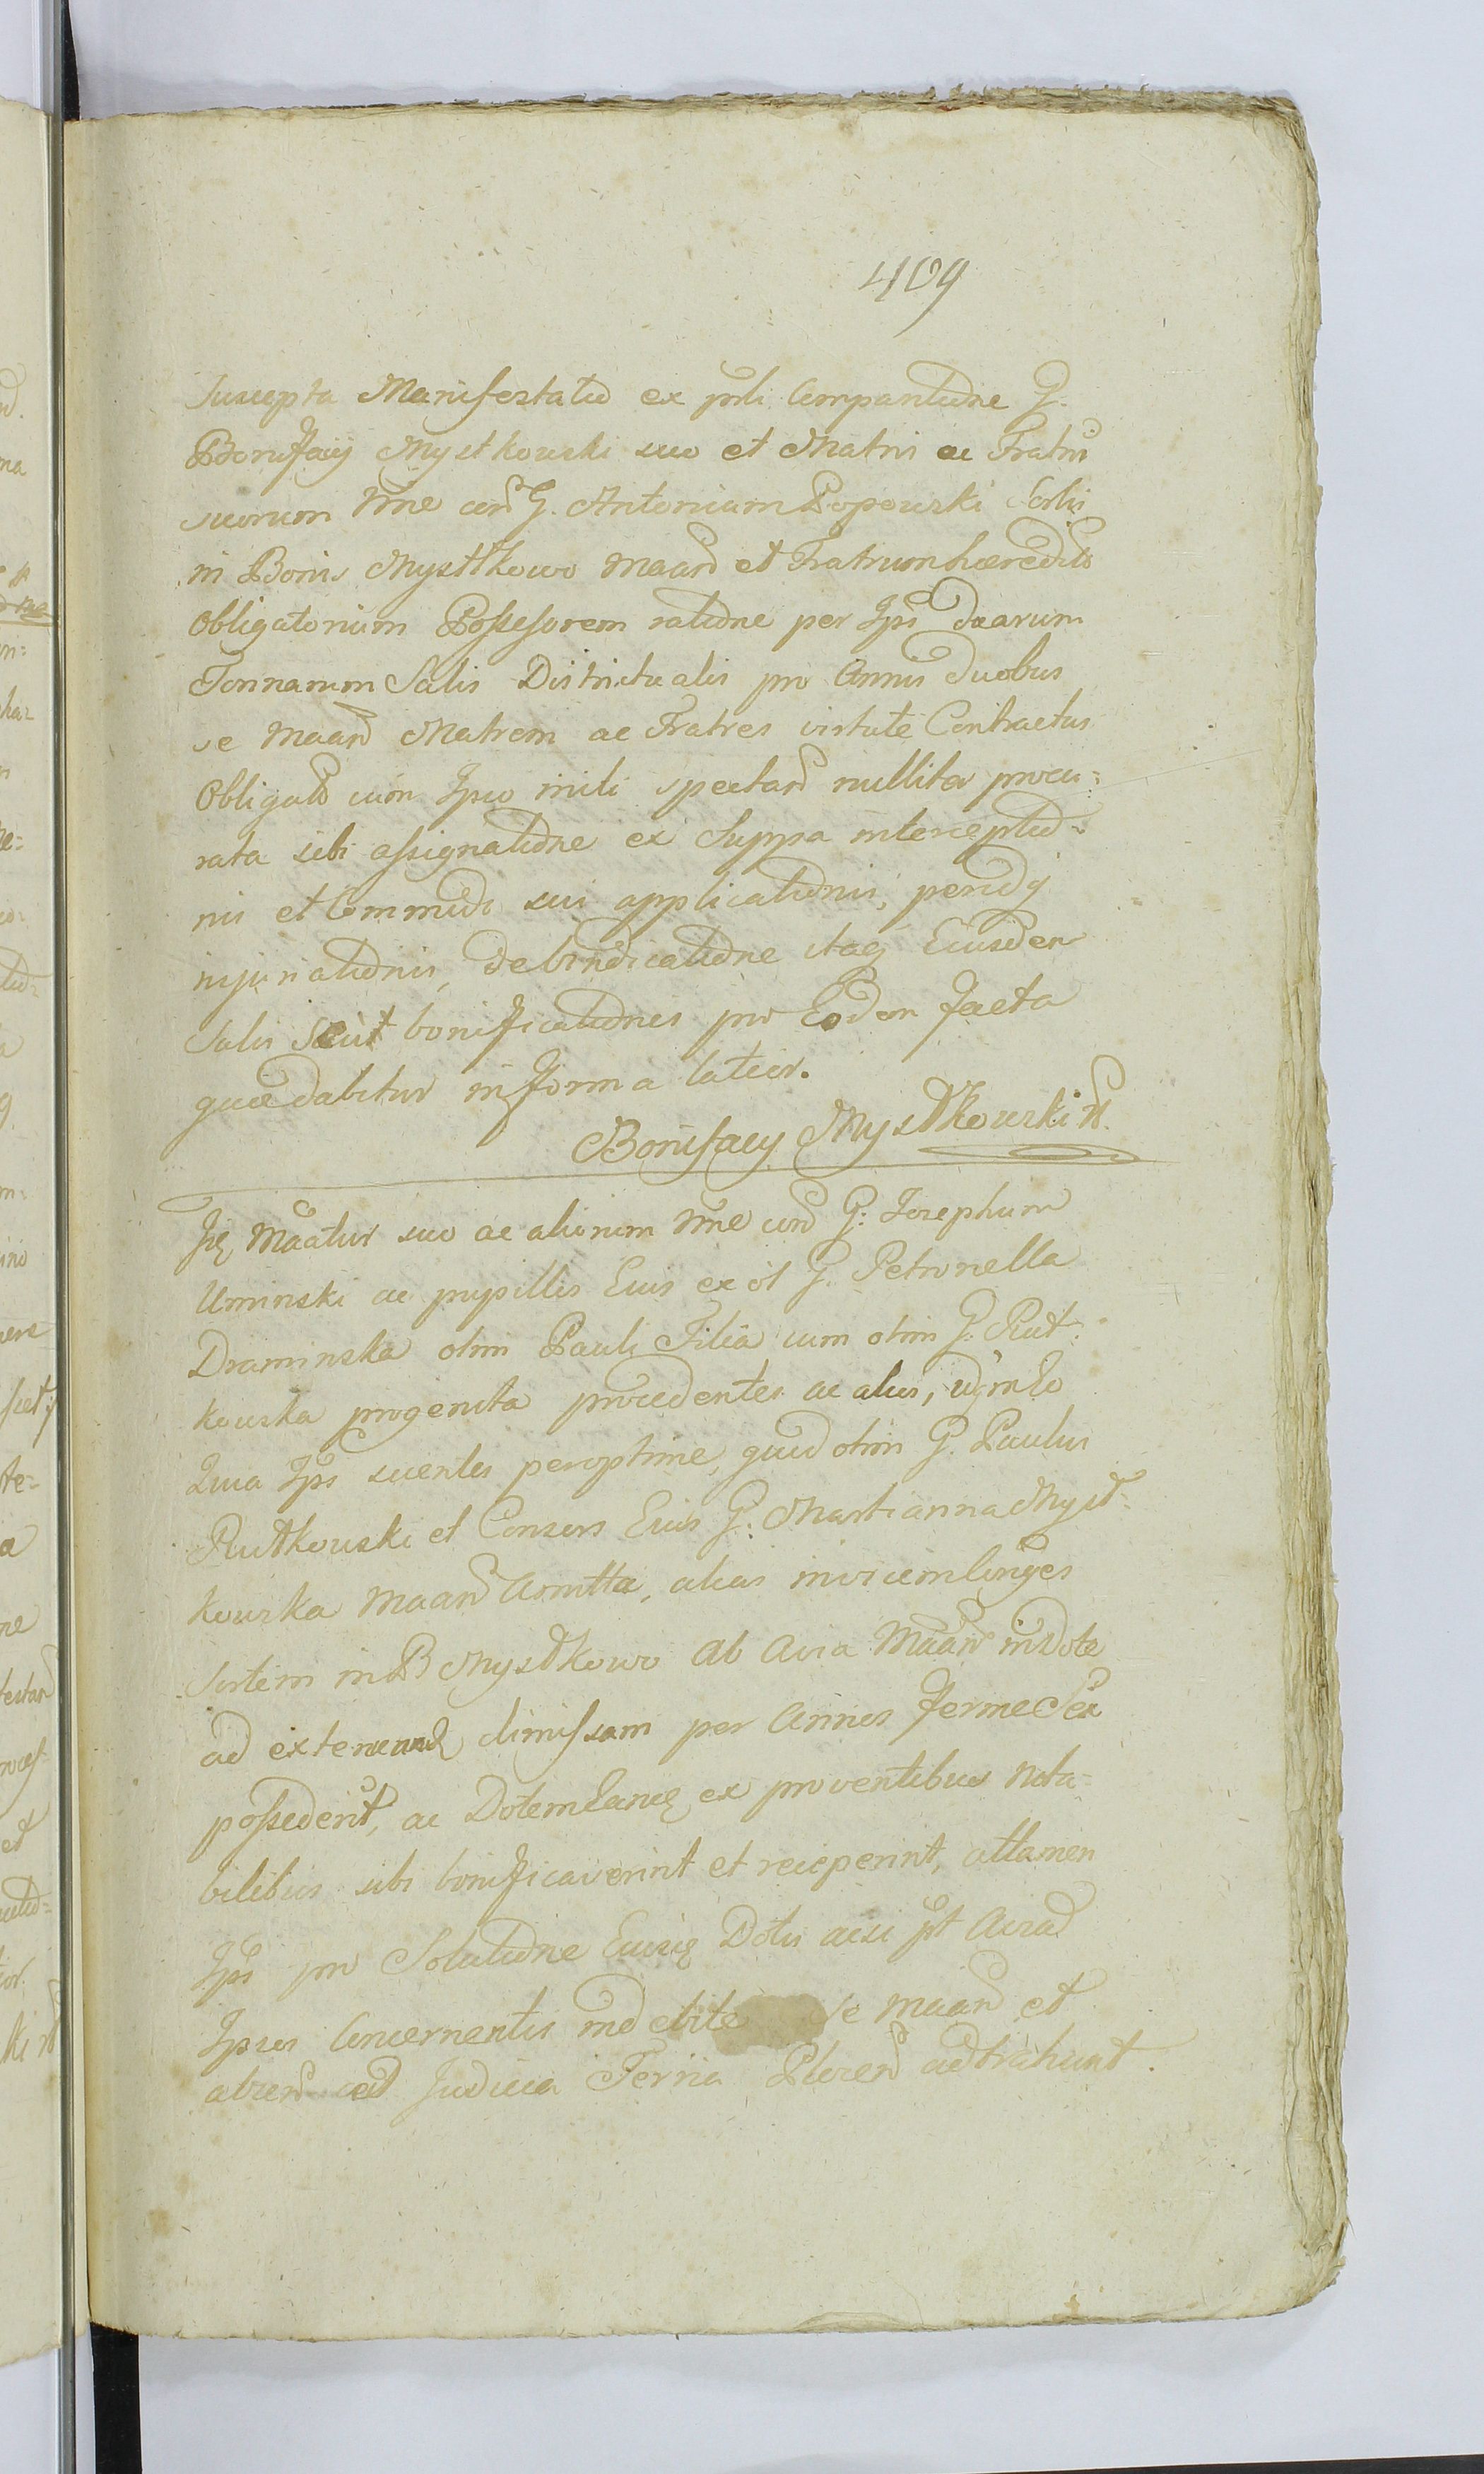 409
Suscepta Manifestatio ex pnti Comparitione G.
Bonifacij Mystkowski suo et Matris ac Fratrũ
suorum Nñe con G. Antonium Popowski Sortis
in Bonis Mysttkowo Maand et Fratrum hæredits
Obligatorium Possessorem ratione per Ips duarum
Tonnarum Salis Districtualis pro Annis duobus
se Maand Matrem ac Fratres virtute Contractus
Obligatо cum Ipso initi spectand nulliter procu=
rata sibi assignatione ex Suppa interceptio=
nis et Commodo sui applicationis,
injuriationis, de vindicatione itaq Eiusdem
Salis seu bonificationis pro Eodem facta
quæ dabitur in forma latior.
Bonifacy Mystkowski
Id Maatur suo ac aliorum Nñe con G: Josephum
Uminski ac pupillis Eius ex ol G. Petronella
Draminska olim Pauli Filia cum olim G. Rut=
kowska progenita procedentes ac alios, in Eo
Quia Ips scientes peroptime, quod olim G. Paulus
Rutkowski et Consors Eius G. Martianna Myst=
kowska Maand Amitta, alias invicem Conjges
Sortem in B Mystkowo ab Avia Maand in Dote
ad dimissam per Annos ferme Sex
possederit, ac Dotem Eang ex proventibus nota=
bilibus sibi bonificaverint et reciperint, attamen
Ips pro Solutione Eiusq Dotis acsi
Ipsos Concernentis indebite se Maand et
ad Judicia Terria Plocen adtrahunt.